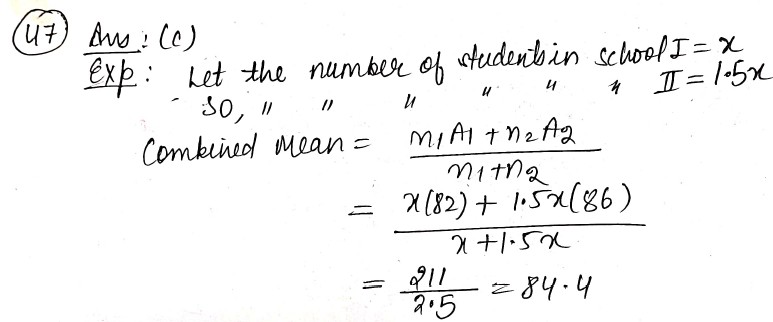 47 Ans : (c)
Exp : Let the number of students in school I = x
So, " " " " " " II = 1.5x
Combined Mean = n1A1 + n2A2
n1+n2
= x(82) + 1.5x(86)
x+1.5x
= 211 = 84.4
2.5